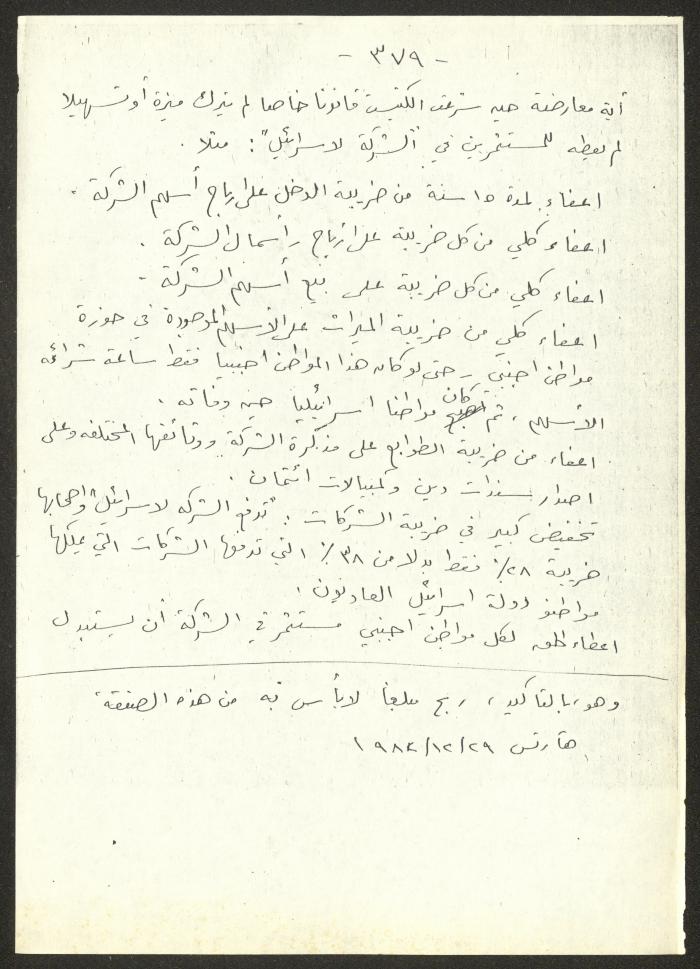 - ٣٧٩ -
أية معارضة حين شرعت الكنيست قانونا خاصا لم يترك ميزة أو تسهيلا
لم يعطه للمستثمرين في "الشركة لاسرائيل": مثلا .
اعفاء لمدة ١٥ سنة من ضريبة الدخل على ارباح أسهم الشركة .
اعفاء كلي من كل ضريبة على ارباح رأسمال الشركة .
اعفاء كلي من كل ضريبة على بيع أسهم الشركة .
اعفاء كلي من ضريبة الميراث على الأسهم الموجودة في حوزة
مواطن اجنبي - حتى لو كان هذا المواطن اجنبيا فقط ساعة شرائه
الأسهم ، ثم كان مواطنا اسرائيليا حين وفاته .
اعفاء من ضريبة الطوابع على مذكرة الشركة ووثائقها المختلفه وعلى
اصدار سندات دين وكمبيالات ائتمان .
تخفيض كبير في ضريبة الشركات : "تدفع الشركه لاسرائيل" واصحابها
ضريبة ٢٨٪ فقط بدلا من ٣٨٪ التي تدفعها الشركات التي يملكها
مواطنو دولة اسرائيل العاديون .
اعطاء الحق لكل مواطن اجنبي مستثمر في الشركة أن يستبدل
وهو ، بالتأكيد ، ربح مبلغا لا بأس به من هذه الصفقة"
هآرتس ١٩٨٤/١٢/٢٩